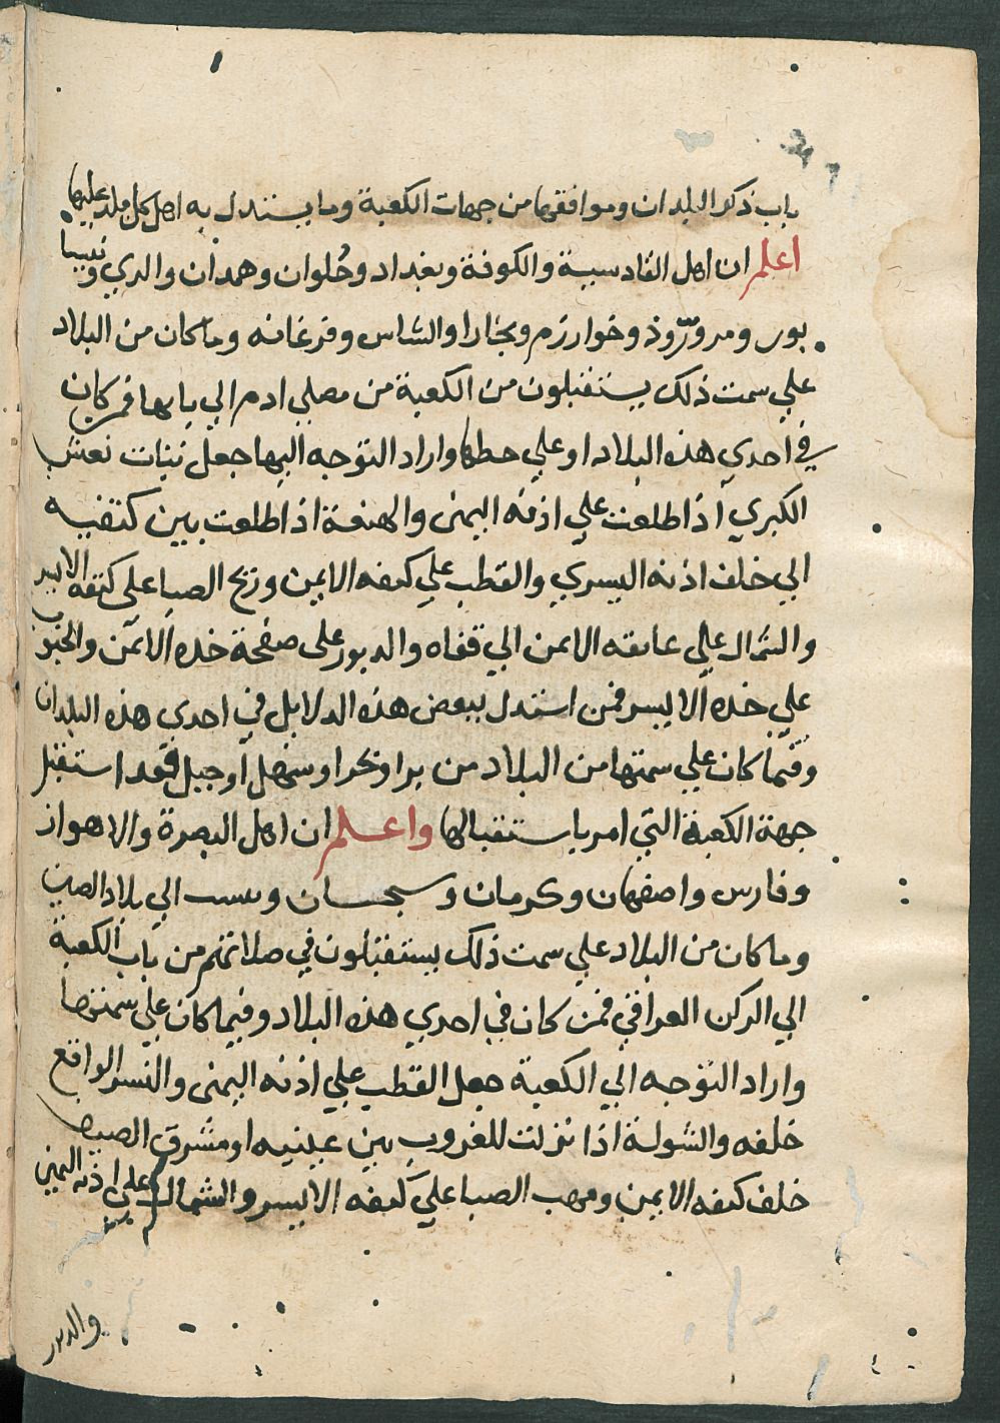 باب ذكر البلدان وموافقها من جهات الكعبة وما يستدل به اهل كل بلد عليها
اعلم ان اهل القادسية والكوفة وبغداد وحُلوان وهمدان والري ونيسا
بور ومرورّوذ وخوارزم وبخارا والشاس وفرغانه وما كان من البلاد
علي سمت ذلك يستقبلون من الكعبة من مصلي ادم الي بابها فمن كان
في احدي هذه البلاد او علي خطها واراد التوجه اليها جعل بنات نعش
الكبري اذا طلعت علي اذنه اليمنى والهنعة اذا طلعت بين كتفيه
الي خلف اذنه اليسري والقطب علي كتفه الايمن وريح الصبا على كتفه الايسر
والشمال علي عاتقه الايمن الي قفاه والدبور على صفحة خده الايمن والجنوب
علي خده الايسر فمن استدل ببعض هذه الدلايل في احدى هذه البلدان
وفيما كان علي سمتها من البلاد من بر او بحر او سهل او جبل فقد استقبل
جهة الكعبة التي امر باستقبالها واعلم ان اهل البصرة والاهواز
وفارس واصفهان وكرمان وسجستان وبست الي بلاد الصين
وما كان من البلاد علي سمت ذلك يستقبلون في صلاتهم من باب الكعبة
الي الركن العراقي فمن كان في احدي هذه البلاد وفيما كان علي سمتها
واراد التوجه الي الكعبة جعل القطب علي اذنه اليمنى والنسر الواقع
خلفه والشولة اذا نزلت للغروب بين عينيه او مشرق الصيف
خلف كتفه الايمن ومهب الصبا علي كتفه الايسر والشمال على اذنه اليمني
والدبور